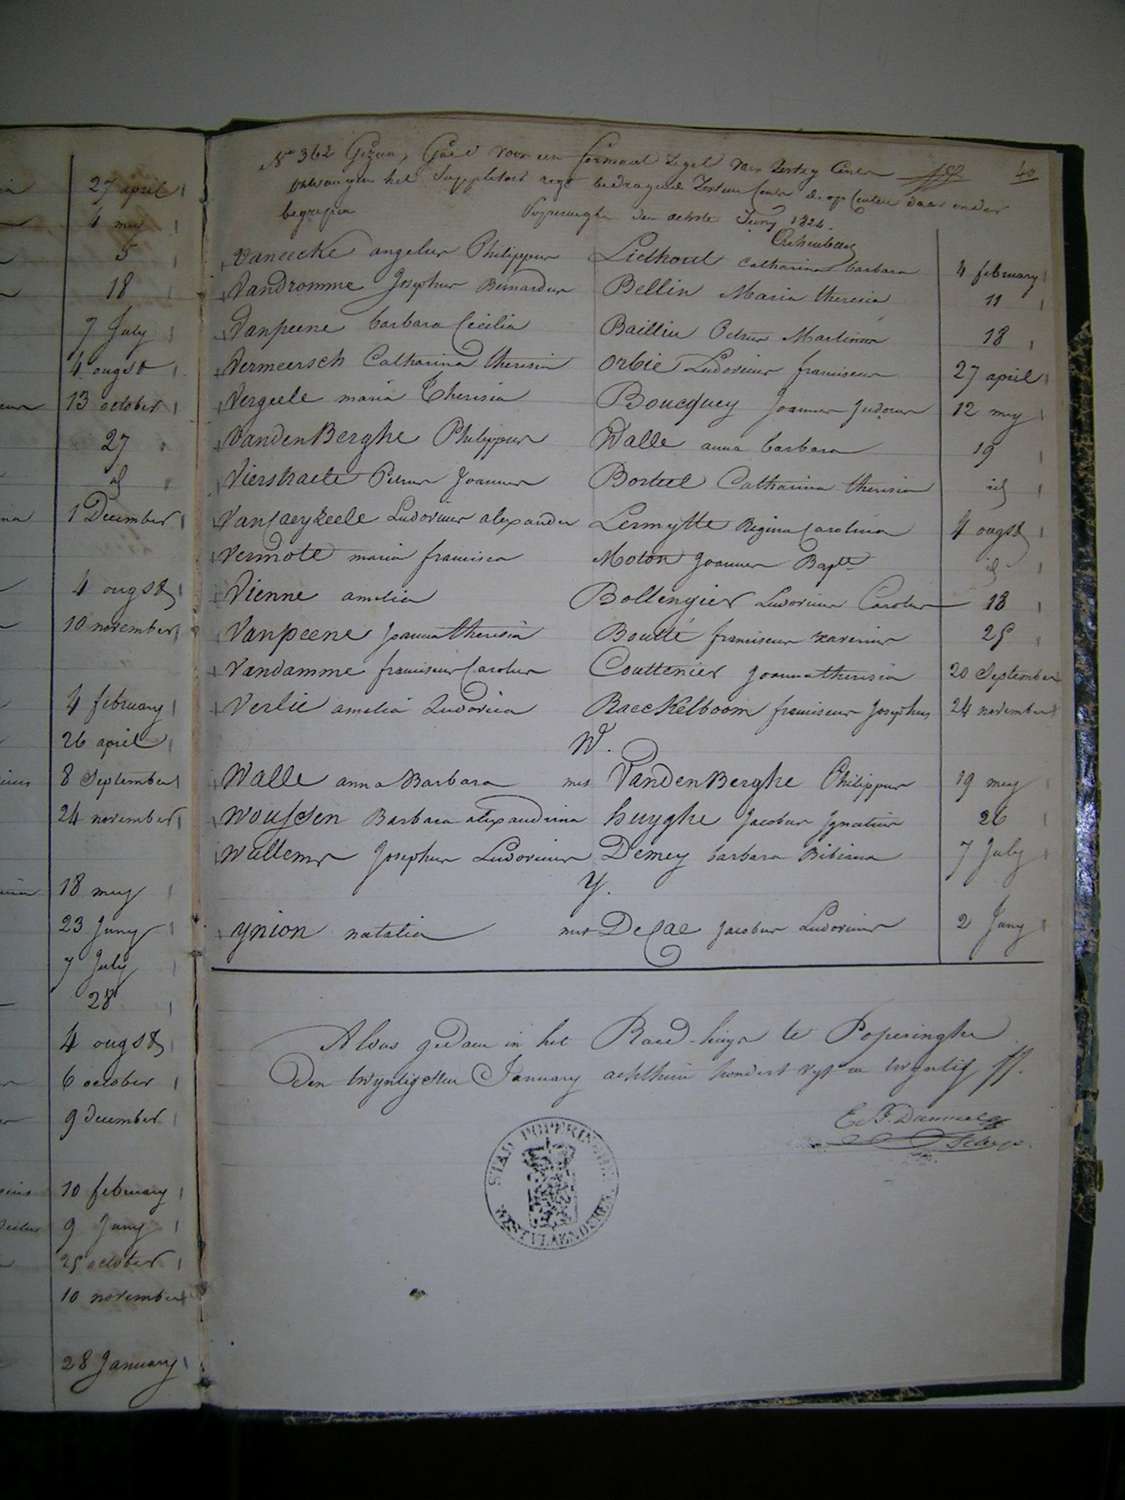 27 april
4 mey
5
18
7 July
4 ougst
13 october
27
id
1 December
4 ougst
10 november
4 february
26 april
8 September
24 november
18 mey
23 Juny
7 July
28
4 ougst
6 october
9 december
10 february
9 Juny
25 october
10 november
28 January
40
N° 362 Gezien, Goed voor een formaet Zegel van
ontvangen het Suppletoir regt bedragende daar onder
begrepen Poperinghe den achste Juny 1824.
Vaneecke angelus Philippus Liethout Catharina barbara 4 february
Vandromme Josephus Bernardus Bellin Maria theresia 11
Vanpeene barbara Cecilia Bailliu Petrus Martinus 18
Vermeersch Catharina theresia Orbie Ludovicus franciscus 27 april
Vergeele maria Theresia Boucquey Joannes Judocus 12 mey
VandenBerghe Philippus Walle anna barbara 19
Vierstraete Petrus Joannes Borteel Catharina theresia id
Vancaeyzeele Ludovicus alexander Lermytte Regina Carolina 4 ougst
Vermote maria francisca Moton Joannes Bapte id
Vienne amelia Bollengier Ludovicus Carolus 18
Vanpeene Joanna theresia Boutté franciscus xaverius 25
Vandamme franciscus Carolus Couttenier Joanna theresia 20 September
Verlie amelia Ludovica Raeckelboom franciscus Josephus 24 november
W.
Walle anna Barbara met VandenBerghe Philippus 19 mey
Woussen Barbara alexandrina huyghe Jacobus Ignatius 26
Wullems Josephus Ludovicus Demey barbara Bibiana 7 July
Y.
ynion natalia met DeCae Jacobus Ludovicus 2 Juny
Aldus gedaen in het Raed-huys te Poperinghe
Den twyntigsten January achthien hondert vyf en twyntig
STAD POPERINGHE
WESTVLAENDEREN